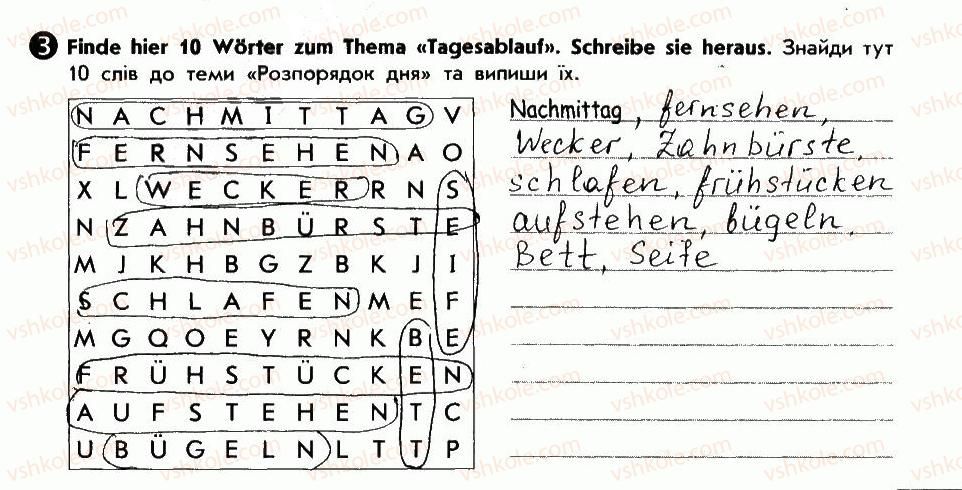 3 Finde hier 10 Wörter zum Thema «Tagesablauf». Schreibe sie heraus. Знайди тут
10 слів до теми «Розпорядок дня» та випиши їх.
N A C H M I T T A G V
F E R N S E H E N A O
X L W E C K E R R N S
N Z A H N B Ü R S T E
M J K H B G Z B K J I
S C H L A F E N M E F
M G Q O E Y R N K B E
F R Ü H S T Ü C K E N
A U F S T E H E N T C
U B Ü G E L N L T T P
Nachmittag, fernsehen,
Wecker, Zahnbürste,
schlafen, frühstücken
aufstehen, bügeln,
Bett, Seife
vshkole.com